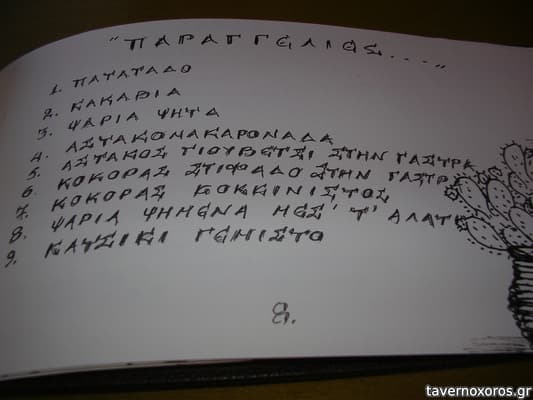 "ΠΑΡΑΓΓΕΛΙΕΣ...."
1. ΠΑΤΑΤΑΔΟ
2. ΚΑΚΑΒΙΑ
3. ΨΑΡΙΑ ΨΗΤΑ
4. ΑΣΤΑΚΟΜΑΚΑΡΟΝΑΔΑ
5. ΑΣΤΑΚΟΣ ΓΙΟΥΒΕΤΣΙ ΣΤΗΝ ΓΑΣΤΡΑ
6. ΚΟΚΟΡΑΣ ΣΤΙΦΑΔΟ ΣΤΗΝ ΓΑΣΤΡΑ
7. ΚΟΚΟΡΑΣ ΚΟΚΚΙΝΙΣΤΟΣ
8. ΨΑΡΙΑ ΨΗΜΕΝΑ ΜΕΣ' Τ' ΑΛΑΤΙ
9. ΚΑΤΣΙΚΙ ΓΕΜΙΣΤΟ
8.
tavernoxoros.gr